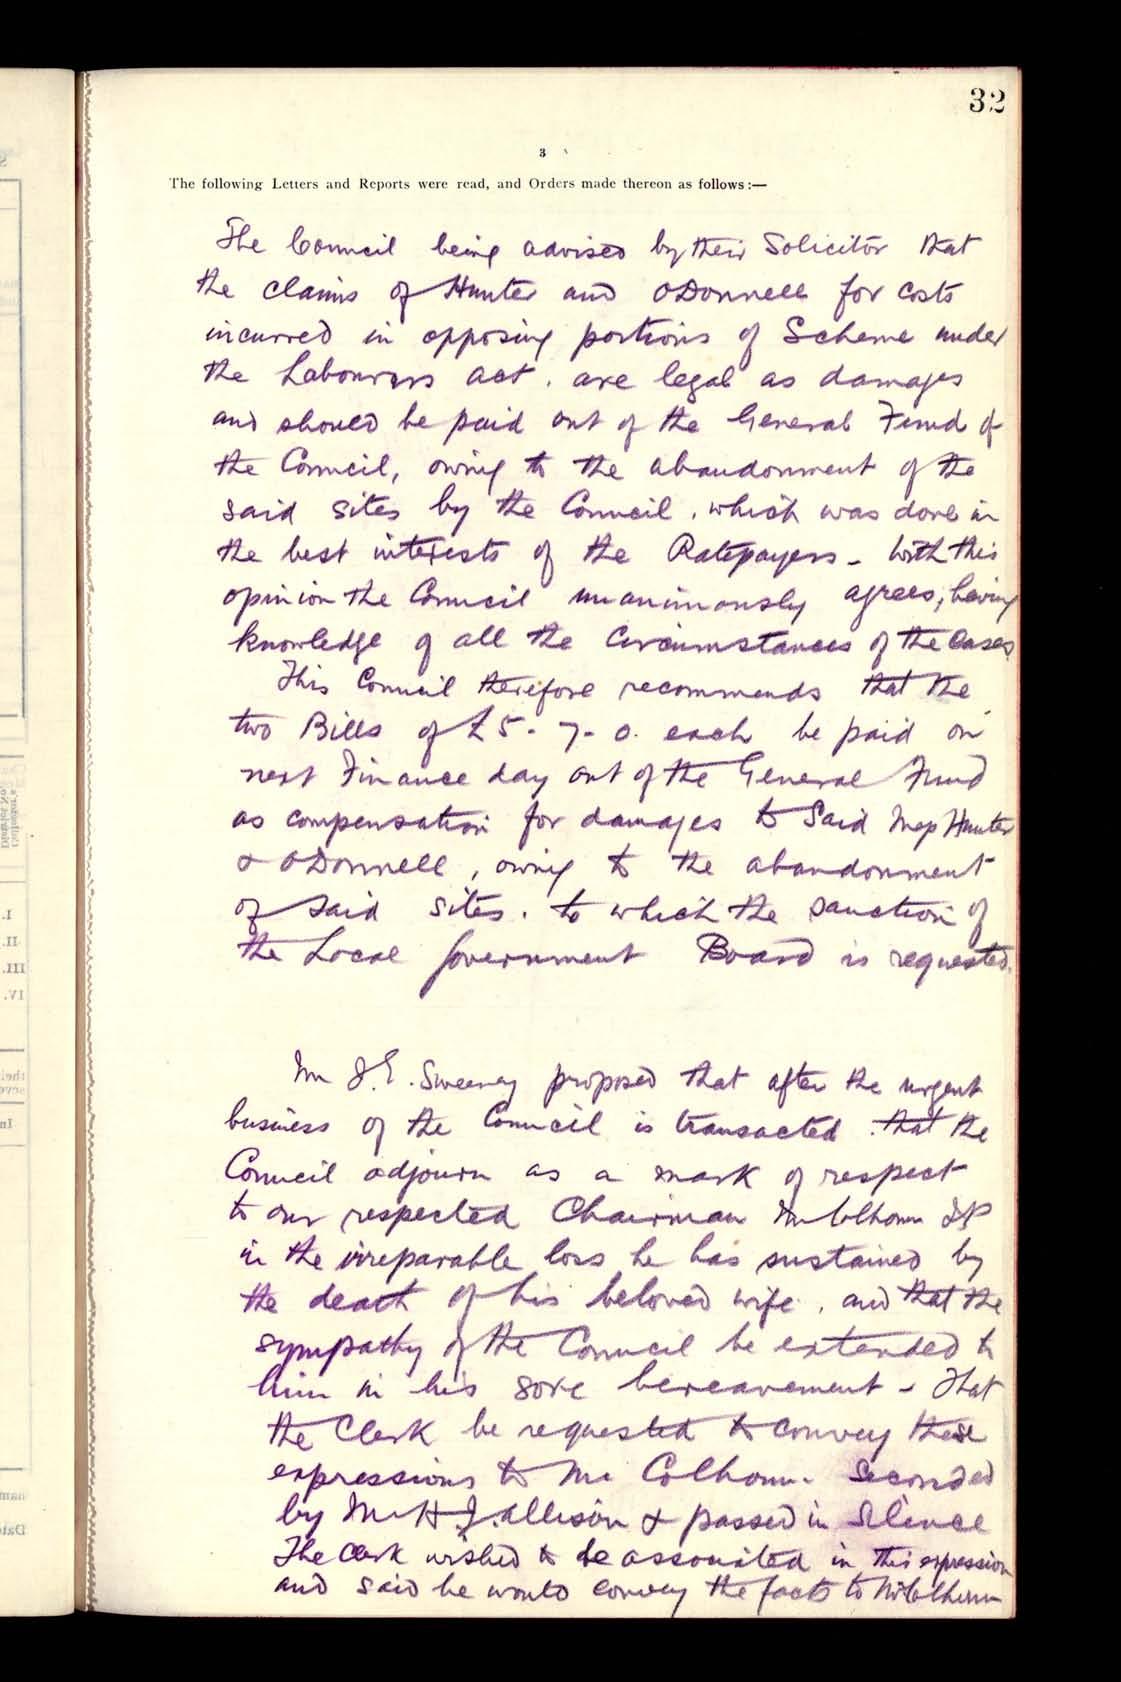 32
3
The following Letters and Reports were read, and Orders made thereon as follows:—
The Council being advised by their Solicitor that
the claims of Hunter and ODonnell for costs
incurred in opposing portions of Scheme under
the Labourers act. are legal as damages
and should be paid out of the General Fund of
the Council, owing to the abandonment of the
said sites by the Council, which was done in
the best interests of the Ratepayers - With this
opinion the Council unanimously agrees, having
knowledge of all the Circumstances of the Cases
This Council therefore recommends that the
two Bills of £5-7-0. each be paid on
next Finance day out of the General Fund
as compensation for damages to Said Hunter
& ODonnell, owing to the abandonment
of said sites. to which the sanction of
the Local Government Board is requested.
Mr J.E. Sweeney proposed that after the urgent
business of the Council is transacted that the
Council adjourn as a mark of respect
to our respected Chairman Mr Colhoun JP
in the irreparable loss he has sustained by
the death of his beloved wife, and that the
sympathy of the Council be extended to
him in his sore bereavement - That
the Clerk be requested to convey these
expressions to Mr Colhoun. Seconded
by Mr H.J. allison & passed in silence
The Clerk wished to be associated in this expression
and said he would convey the facts to Mr Colhoun